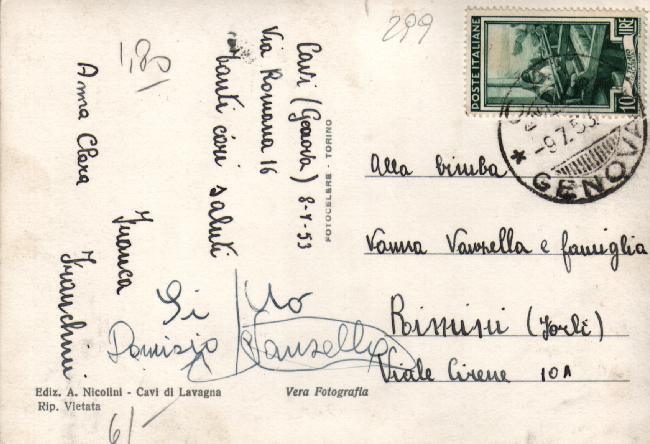 299
1,80
Cavi (Genova) 8-7-53
Via Romana 16
tanti cari saluti
Anna Clara
Franca
Franchini
POSTE ITALIANE
LIRE
10
-9.7.53
* GENOVA
Alla bimba
Vanna Vanzella e famiglia
Rimini (Forlì)
Viale Cirene 10A
FOTOCELERE - TORINO
Dionisio Vanzella
Ediz. A. Nicolini - Cavi di Lavagna
Rip. Vietata
Vera Fotografia
6/-